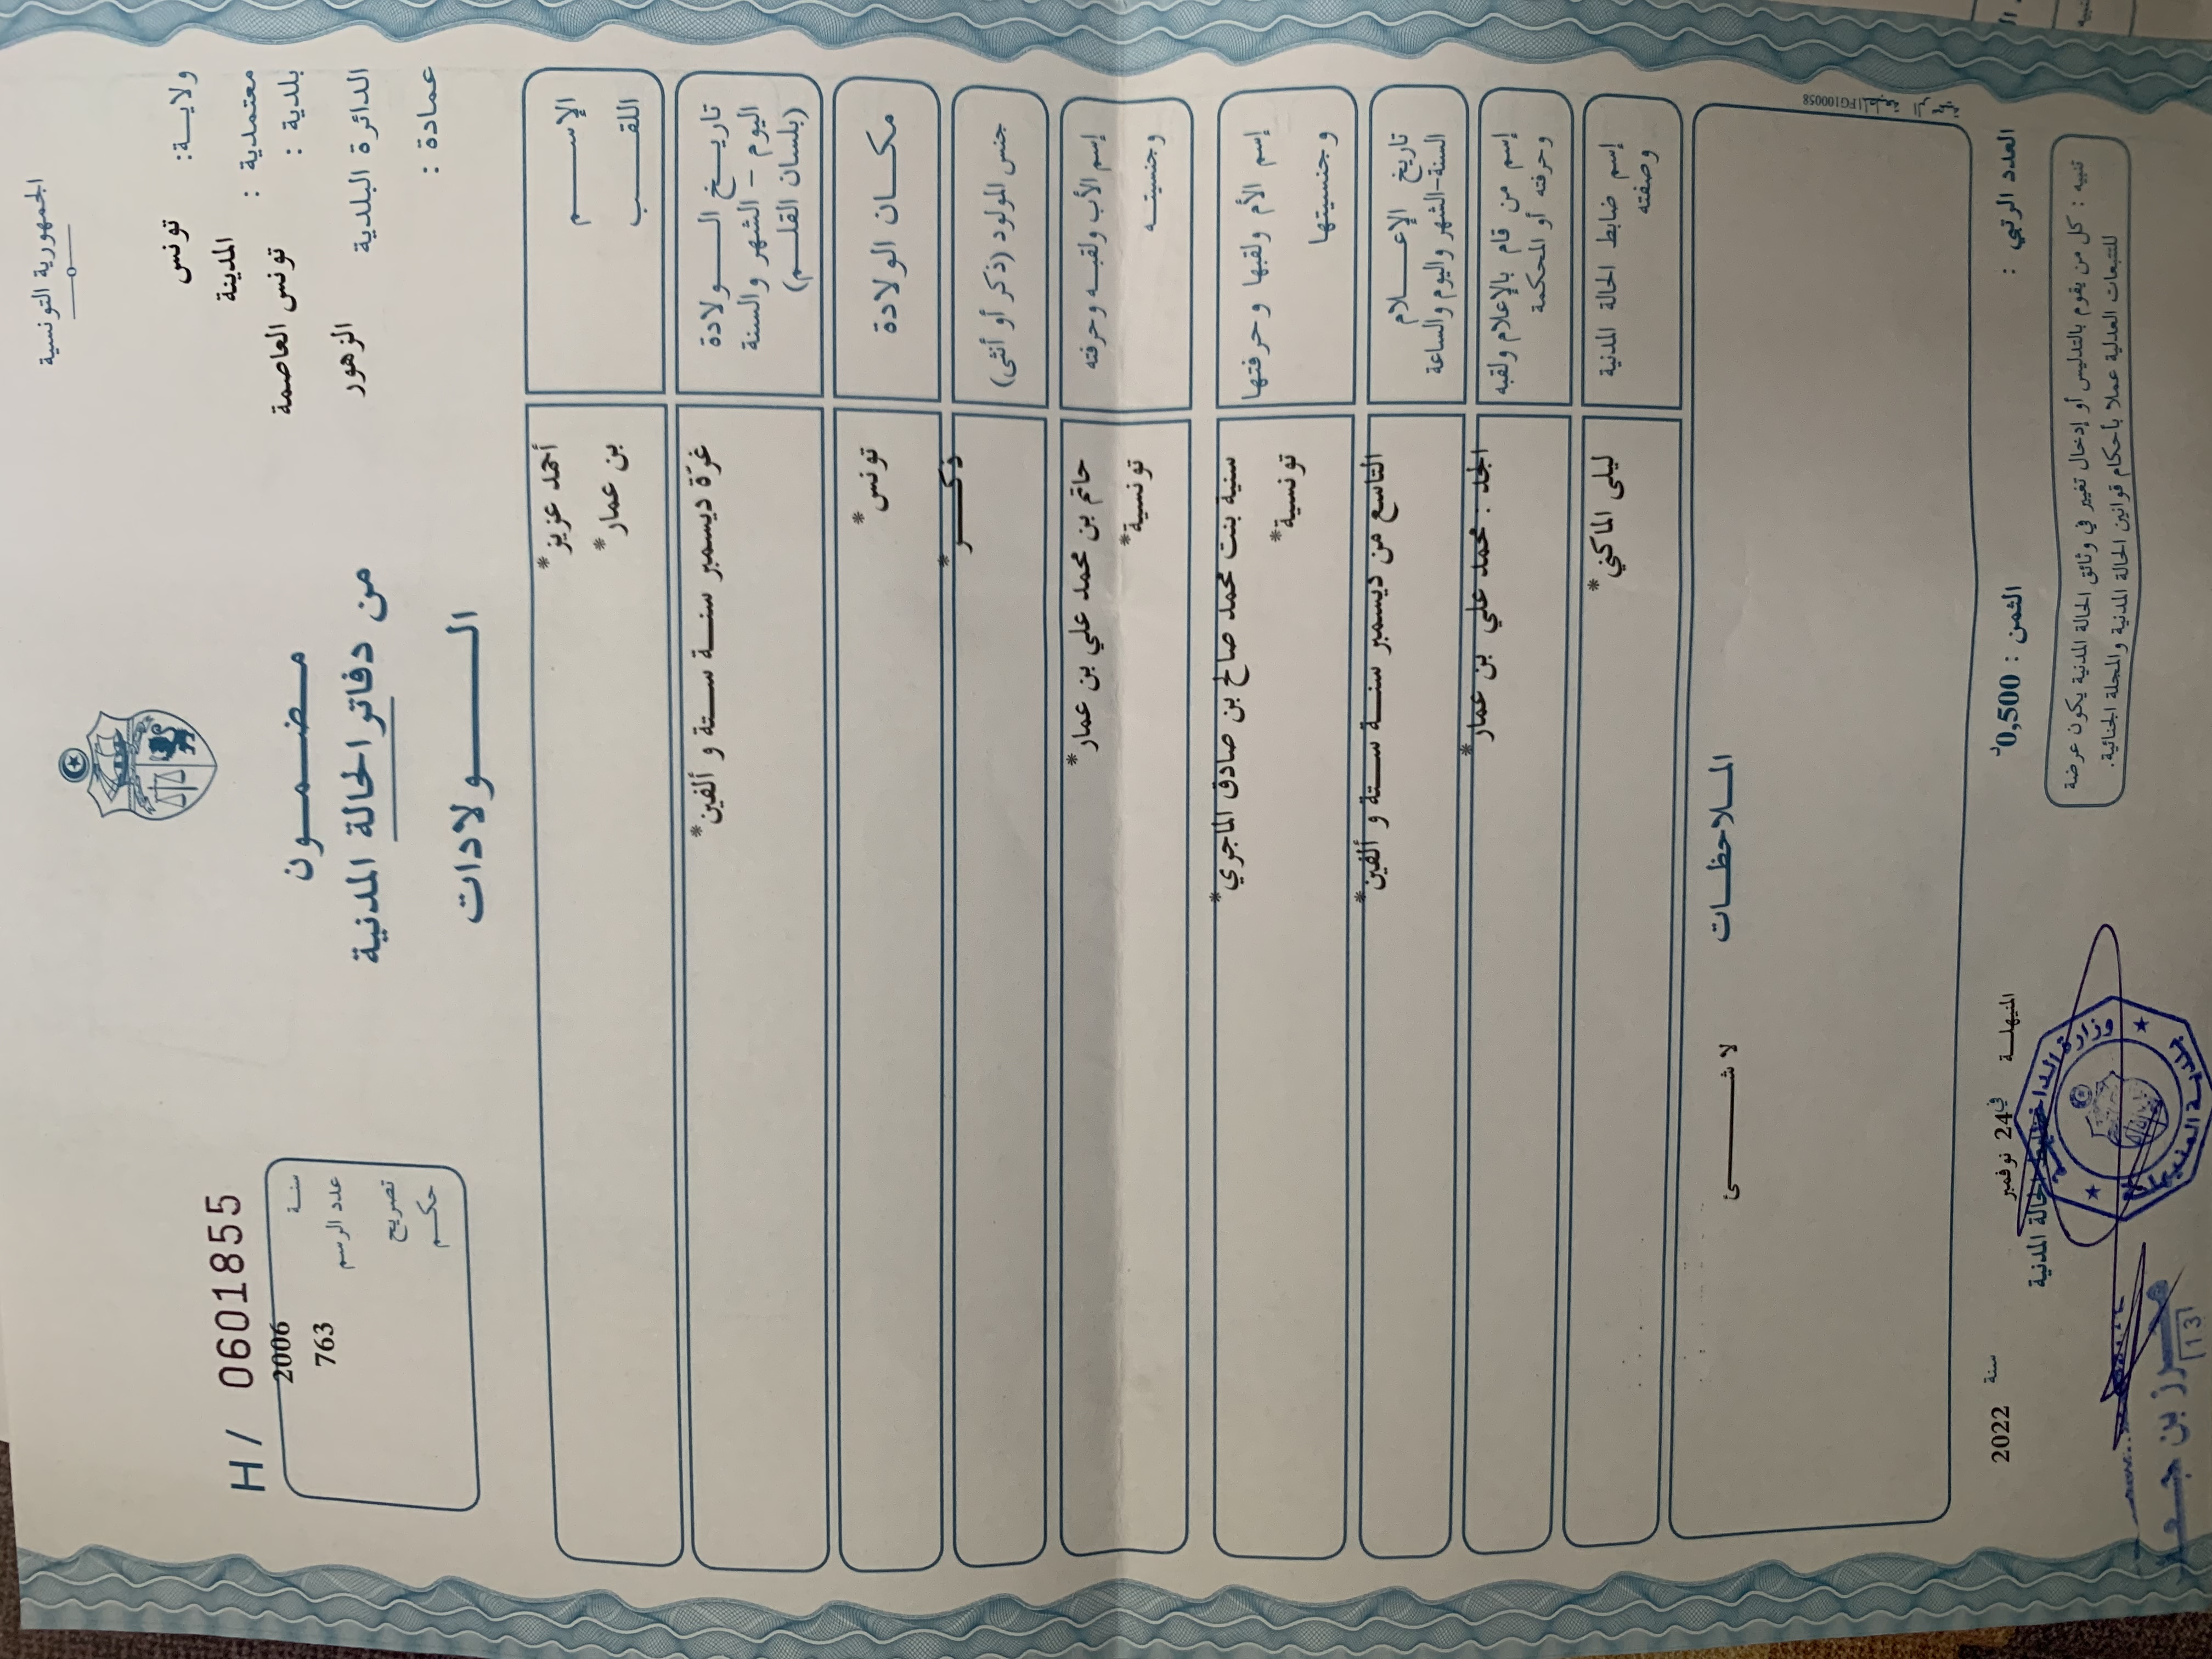 الجمهورية التونسية
ولايـــة: تونس
معتمدية : المدينة
بلدية : تونس العاصمة
الدائرة البلدية الزهور
عمادة :
مـضـمــون
من دفاتر الحالة المدنية
الــــولادات
H / 0601855
سنــة 2006
عدد الرسم 763
تصريح
حكــم
الإســـــم أحمد عزيز*
اللقـــب بن عمار*
تاريــخ الــــولادة غرّة ديسمبر سنــة ستة و ألفين*
اليوم – الشهر والسنة
(بلسان القلــم)
مكــان الولادة تونس*
جنس المولود (ذكر أو أنثى) ذكـــر*
إسم الأب ولقبـه وحرفته حاتم بن محمد علي بن عمار*
وجنسيتــه تونسية*
إسم الأم ولقبها وحرفتها سنية بنت محمد صالح بن صادق الماجري*
وجنسيتها تونسية*
تاريخ الإعـــلام التاسع من ديسمبر سنــة ستة و ألفين*
السنة-الشهر واليوم والساعة
إسم من قام بالإعلام ولقبه الجد : محمد علي بن عمار*
وحرفته أو المحكمة
إسم ضابط الحالة المدنية ليلى الماكني*
وصفته
المــلاحظــات
لا شـــــــئ
1FG100058
العدد الرتبي :
الثمن : 0,500د
المنيهلــة في 24 نوفمبر سنة 2022
ضابط الحالة المدنية
تنبيه : كل من يقوم بالتدليس أو إدخال تغيير في وثائق الحالة المدنية يكون عرضة
للتتبعات العدلية عملا بأحكام قوانين الحالة المدنية والمجلة الجنائية.
وزارة الداخلية
بلدية المنيهلة
محرز بن
131